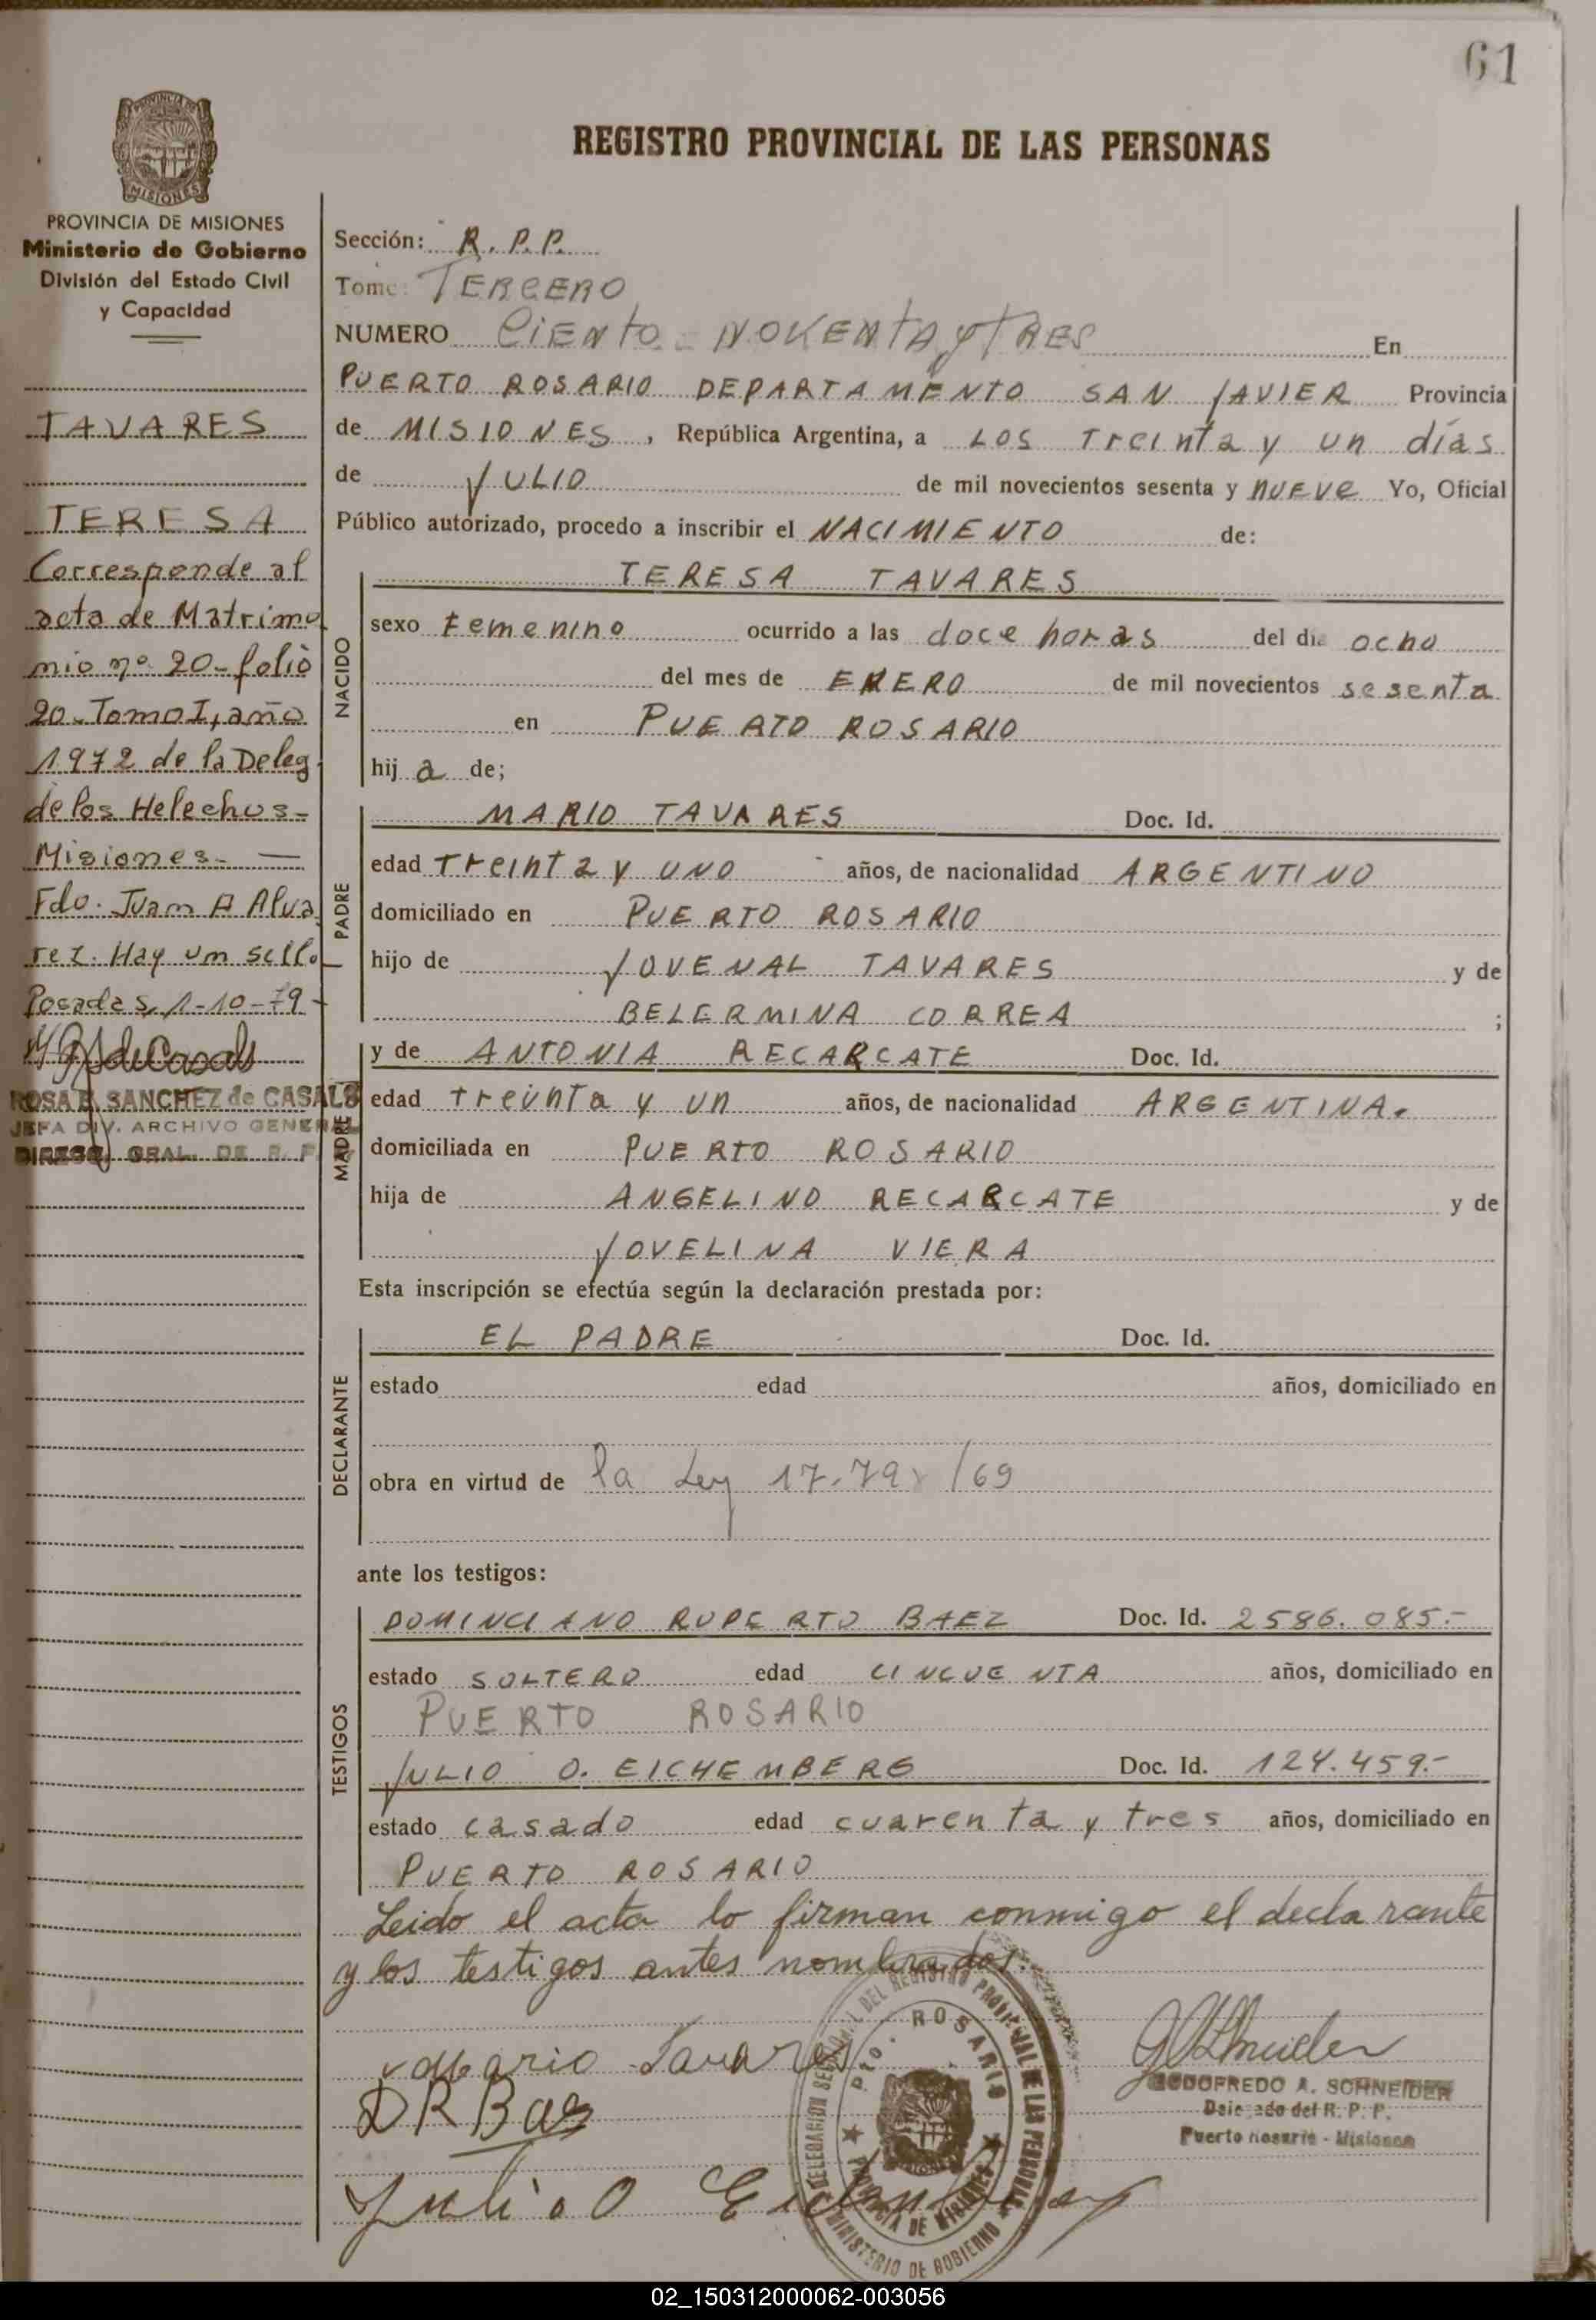 61
PROVINCIA DE
MISIONES
REGISTRO PROVINCIAL DE LAS PERSONAS
PROVINCIA DE MISIONES
Ministerio de Gobierno
División del Estado Civil
y Capacidad
TAVARES
TERESA
Corresponde al
acta de Matrimo
nio nº 20- folio
20- Tomo I, año
1972 de la Deleg.
de los Helechos-
Misiones- —
Fdo. Juan A Alva
rez. Hay un sello
Posadas, 1-10-79-
ROSA E. SANCHEZ de CASALS
JEFA DIV. ARCHIVO GENERAL
DIRECC. GRAL. DE R. P.
Sección: R. P. P.
Tomo: TERCERO
NUMERO CIENTO - NOVENTA y TRES En
PUERTO ROSARIO DEPARTAMENTO SAN JAVIER Provincia
de MISIONES, República Argentina, a LOS Treinta y un días
de JULIO de mil novecientos sesenta y NUEVE Yo, Oficial
Público autorizado, procedo a inscribir el NACIMIENTO de:
NACIDO
TERESA TAVARES
sexo Femenino ocurrido a las doce horas del día ocho
del mes de ENERO de mil novecientos sesenta
en PUERTO ROSARIO
hij a de;
PADRE
MARIO TAVARES Doc. Id.
edad Treinta y UNO años, de nacionalidad ARGENTINO
domiciliado en PUERTO ROSARIO
hijo de JOVENAL TAVARES y de
BELERMINA CORREA ;
MADRE
y de ANTONIA RECARCATE Doc. Id.
edad treinta y un años, de nacionalidad ARGENTINA.
domiciliada en PUERTO ROSARIO
hija de ANGELINO RECARCATE y de
JOVELINA VIERA
Esta inscripción se efectúa según la declaración prestada por:
DECLARANTE
EL PADRE Doc. Id.
estado edad años, domiciliado en
obra en virtud de la Ley /69
ante los testigos:
TESTIGOS
DOMINCIANO RUPERTO BAEZ Doc. Id. 2586.085.-
estado SOLTERO edad CINCUENTA años, domiciliado en
PUERTO ROSARIO
JULIO O. EICHEMBERG Doc. Id. 124.459.-
estado casado edad cuarenta y tres años, domiciliado en
PUERTO ROSARIO
Leido el acta lo firman conmigo el declarante
y los testigos antes nombrados.
Mario Tavares
DR Baez
Julio O Eichemberg
DELEGACION SECCIONAL DEL REGISTRO PROVINCIAL DE LAS PERSONAS
Pto. ROSARIO
PROVINCIA DE MISIONES
MINISTERIO DE GOBIERNO
GODOFREDO A. SCHNEIDER
Delegado del R. P. P.
Puerto Rosario - Misiones
02_150312000062-003056